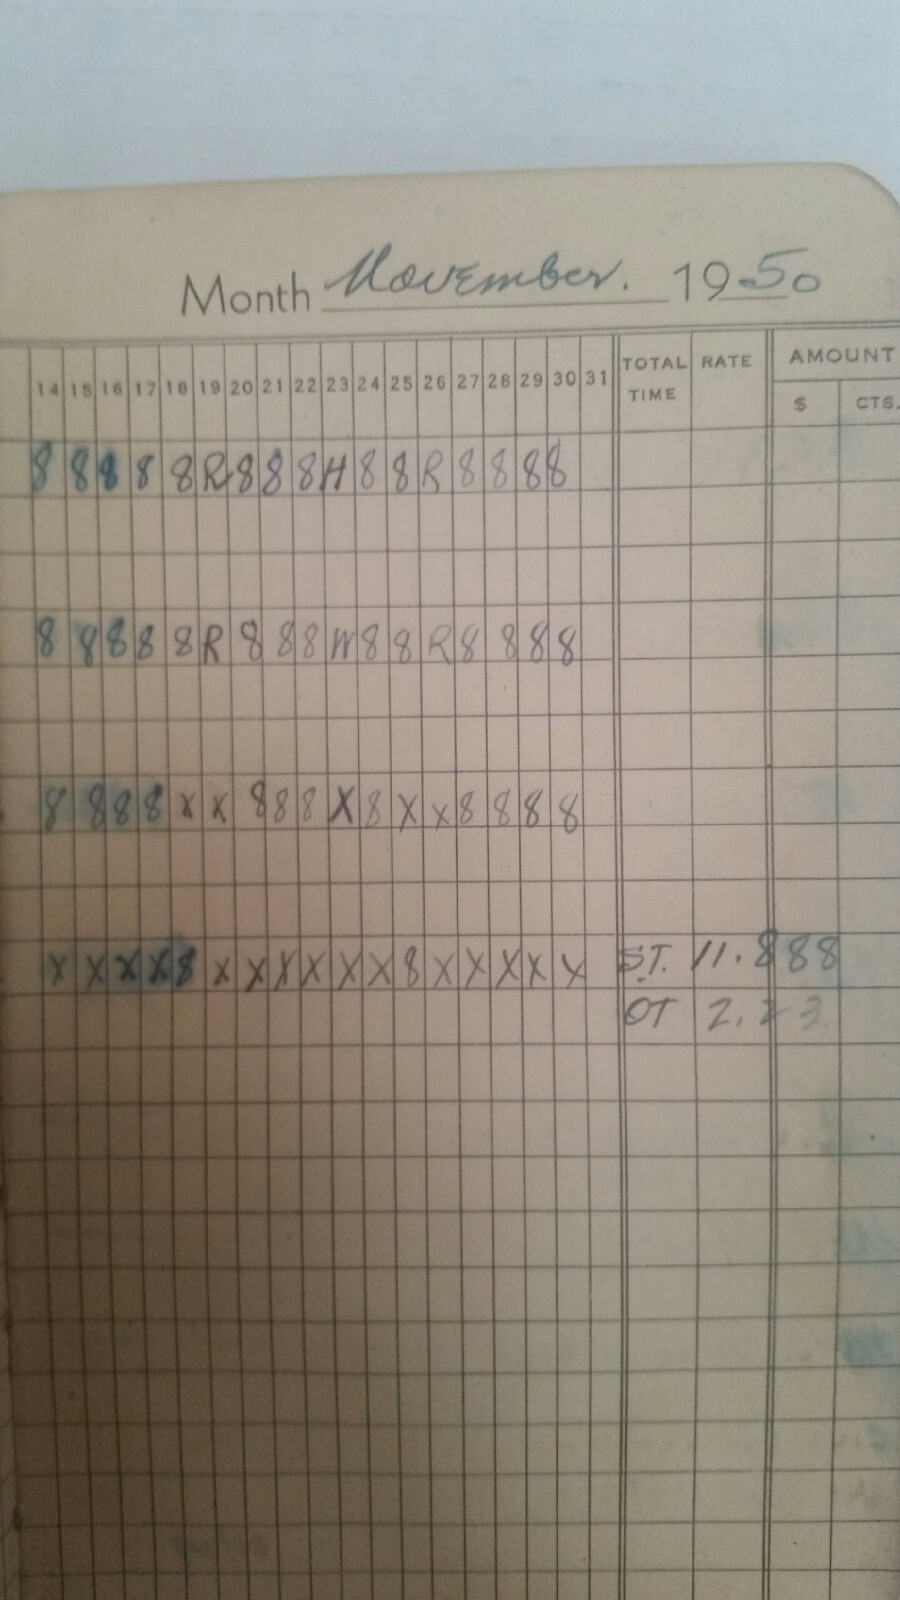 Month November. 1950
14 15 16 17 18 19 20 21 22 23 24 25 26 27 28 29 30 31 TOTAL TIME RATE AMOUNT
$ CTS.
8 8 8 8 8 R 8 8 8 H 8 8 R 8 8 8 8
8 8 8 8 8 R 8 8 8 H 8 8 R 8 8 8 8
8 8 8 8 x x 8 8 8 X 8 X x 8 8 8 8
X X X X 8 x X X X X X 8 X X X X X ST. 11.888
OT 2.23